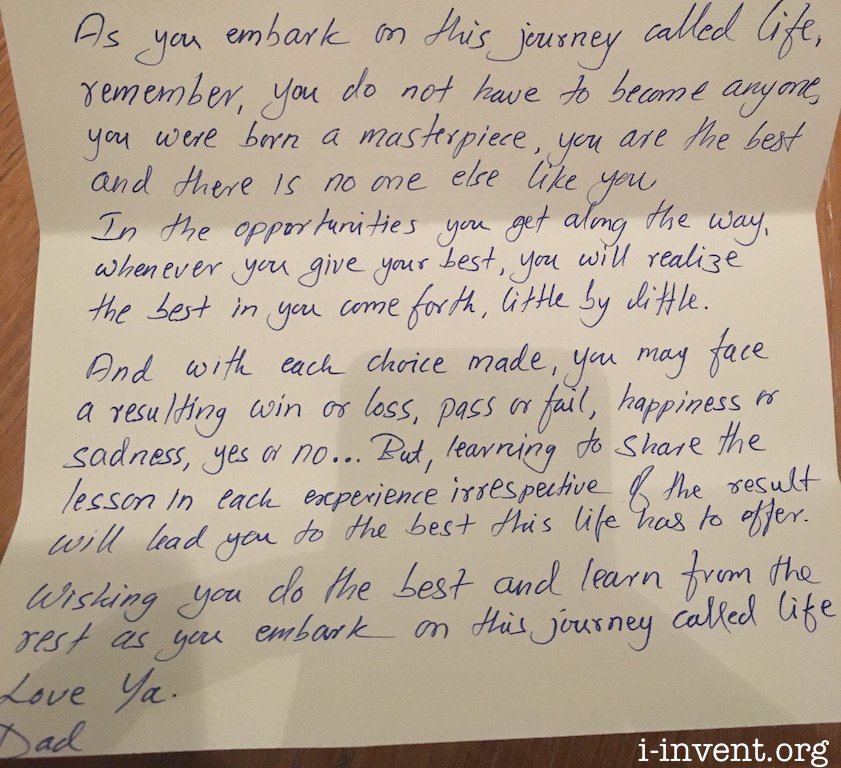 As you embark on this journey called life,
remember, you do not have to become anyone,
you were born a masterpiece, you are the best
and there is no one else like you
In the opportunities you get along the way,
whenever you give your best, you will realize
the best in you come forth, little by little.
And with each choice made, you may face
a resulting win or loss, pass or fail, happiness or
sadness, yes or no... But, learning to share the
lesson in each experience irrespective of the result
will lead you to the best this life has to offer.
Wishing you do the best and learn from the
rest as you embark on this journey called life
Love Ya.
Dad
i-invent.org